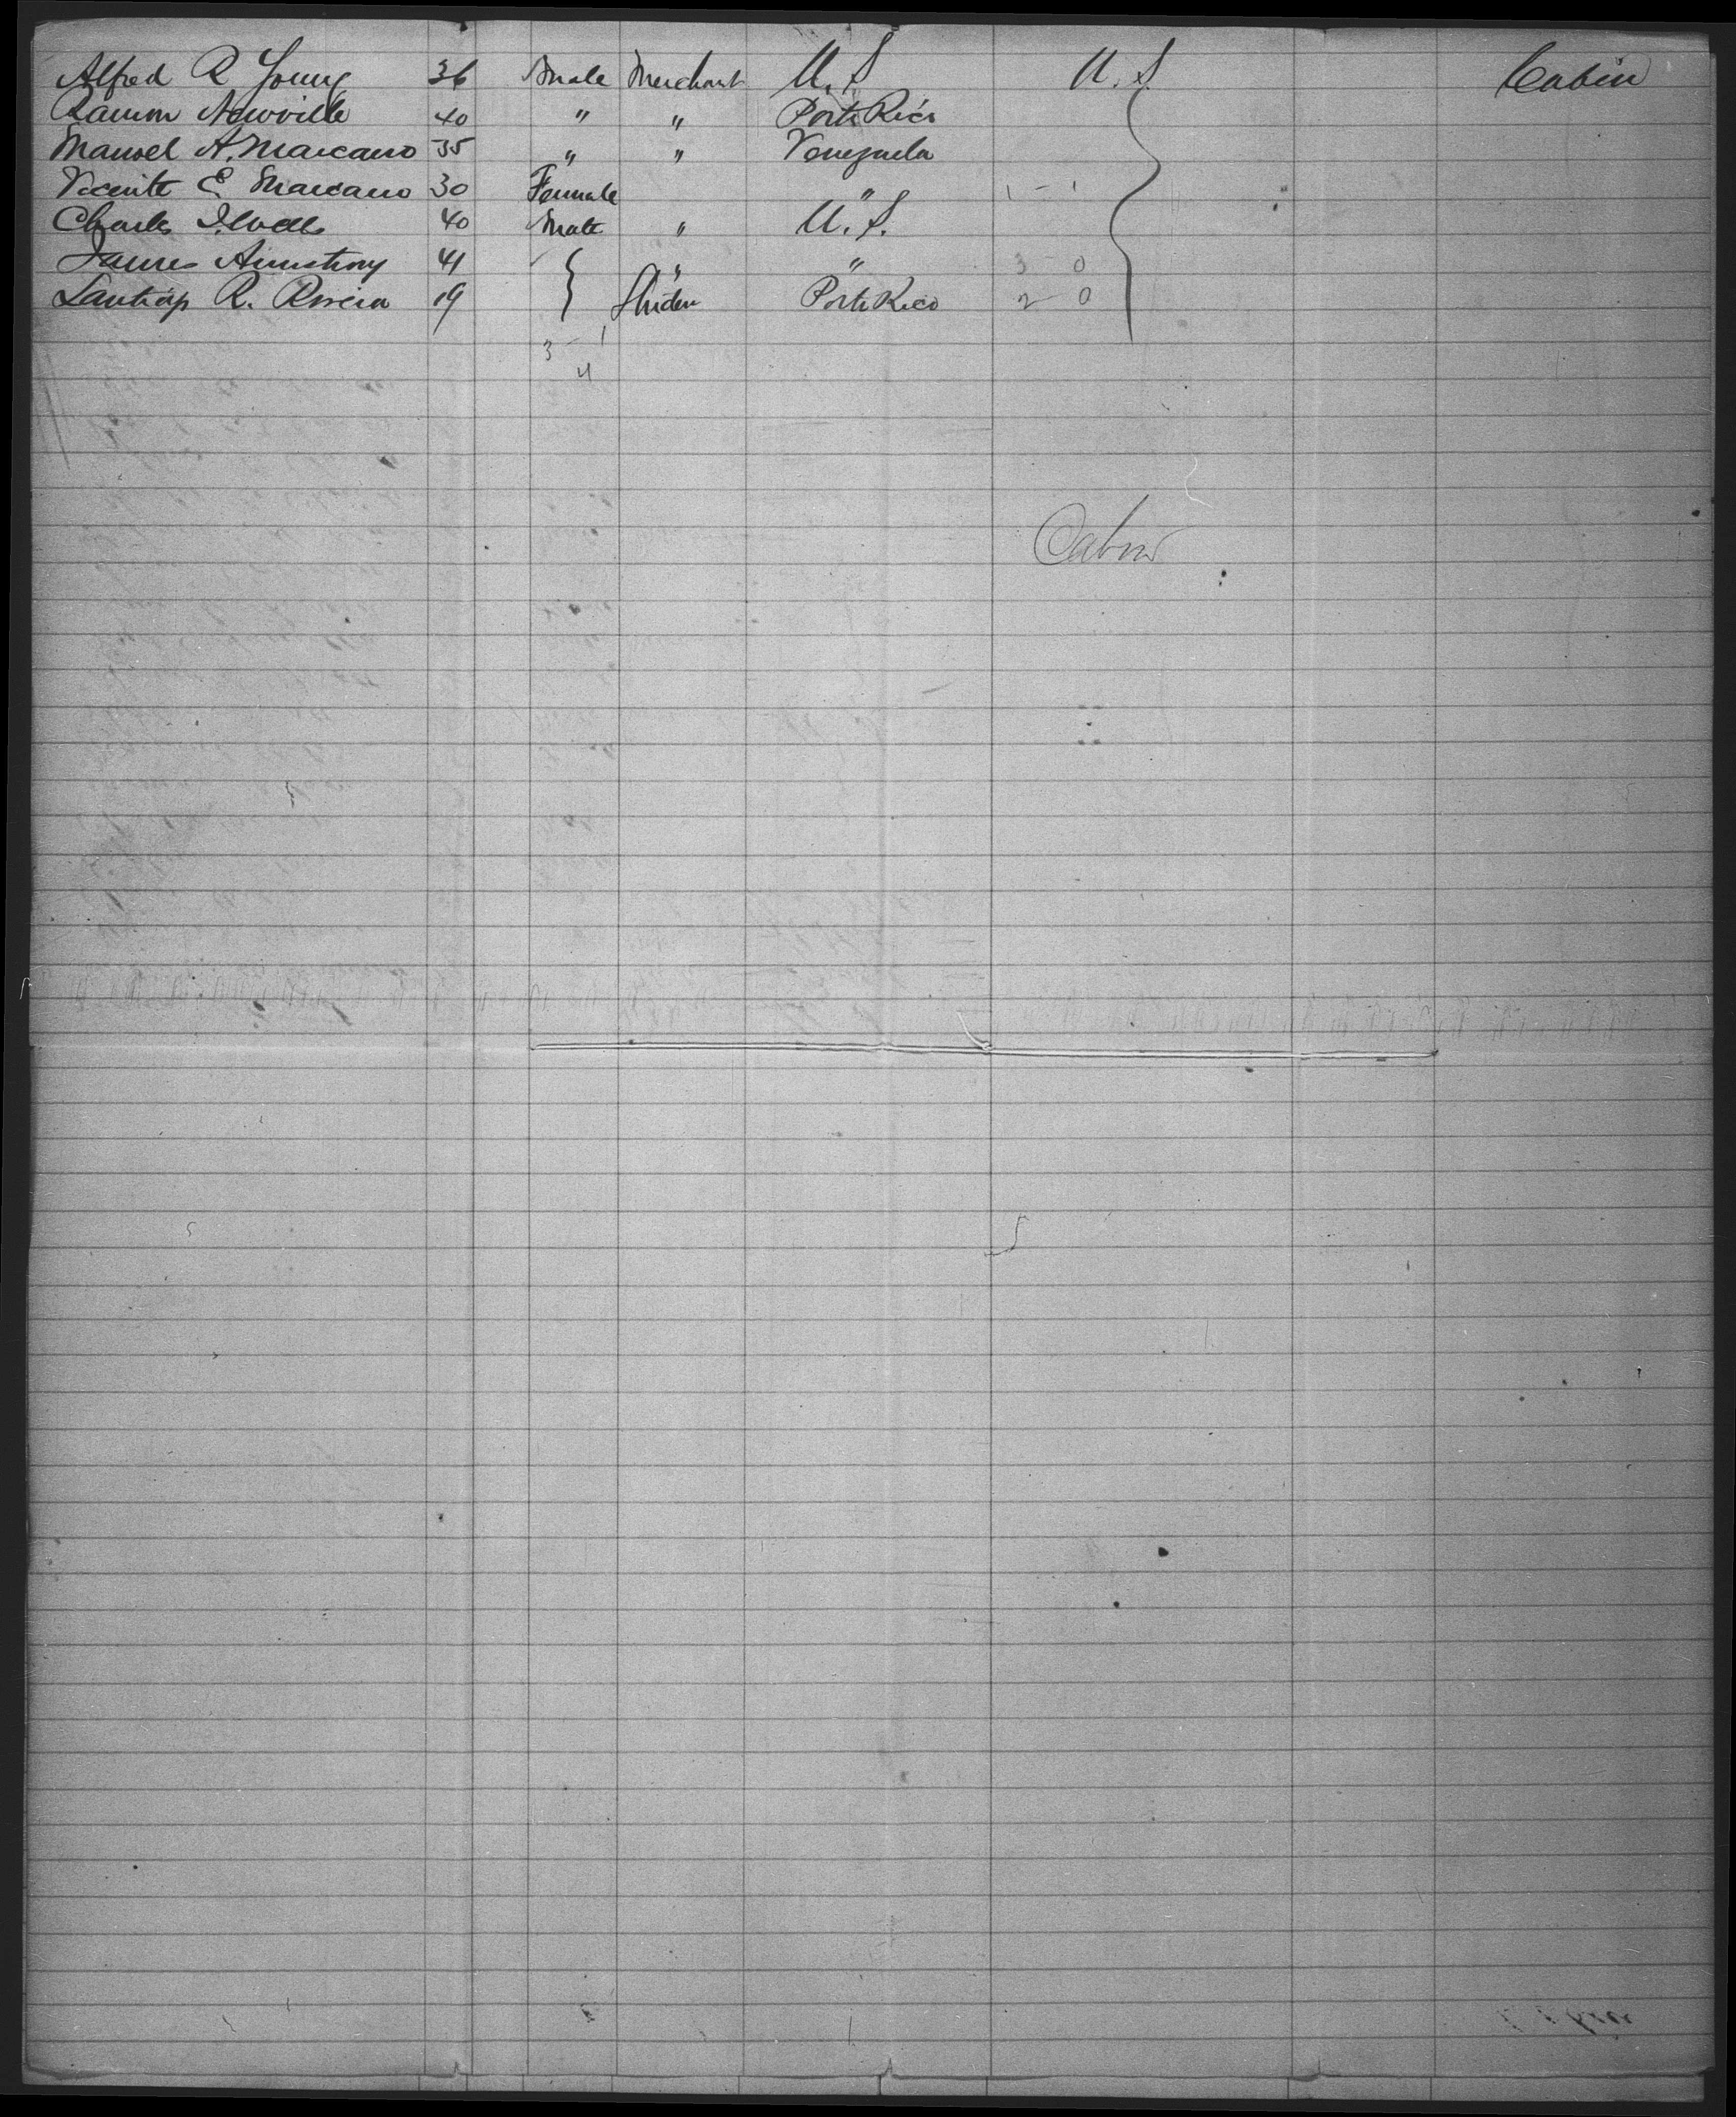 Alfred R Young 36 Male Merchant U.S U.S. Cabin
Ramon Newville 40 " " Porto Rico
Manuel A. Marcano 35 " " Venezuela
Vicente E Marcano 30 Female " 1 - 1
Charles 40 Male " U.S.
James Armstrong 41 " " 3 0
Santiago R. Rivera 19 Studen Porto Rico 2 0
3 - 1
4
Cabin